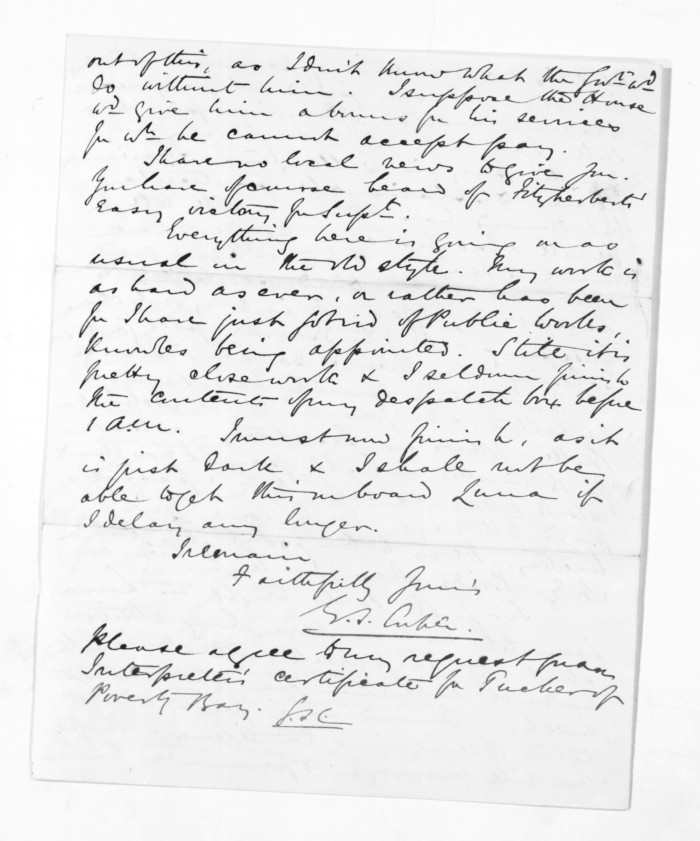 out of this, as I don't know what the Govt. wd
do without him. I suppose the House
wd give him a bonus for his services
for wh. he cannot accept pay.
I have no local news to give you.
You have of course heard of Fitzherbert's
Easy victory for Supt.
Everything here is going on as
usual in the old style. My work is
as hard as ever, or rather has been
for I have just got rid of Public Works,
Knowles being appointed. Still it is
pretty close work & I seldom finish
the contents of my despatch box before
1 AM. I must now finish, as it
is just dark & I shall not be
able to get this on board Luna if
I delay any longer.
I remain
Faithfully yours
Please agree to my request for an
Interpreter's certificate for Tucker of
Poverty Bay.